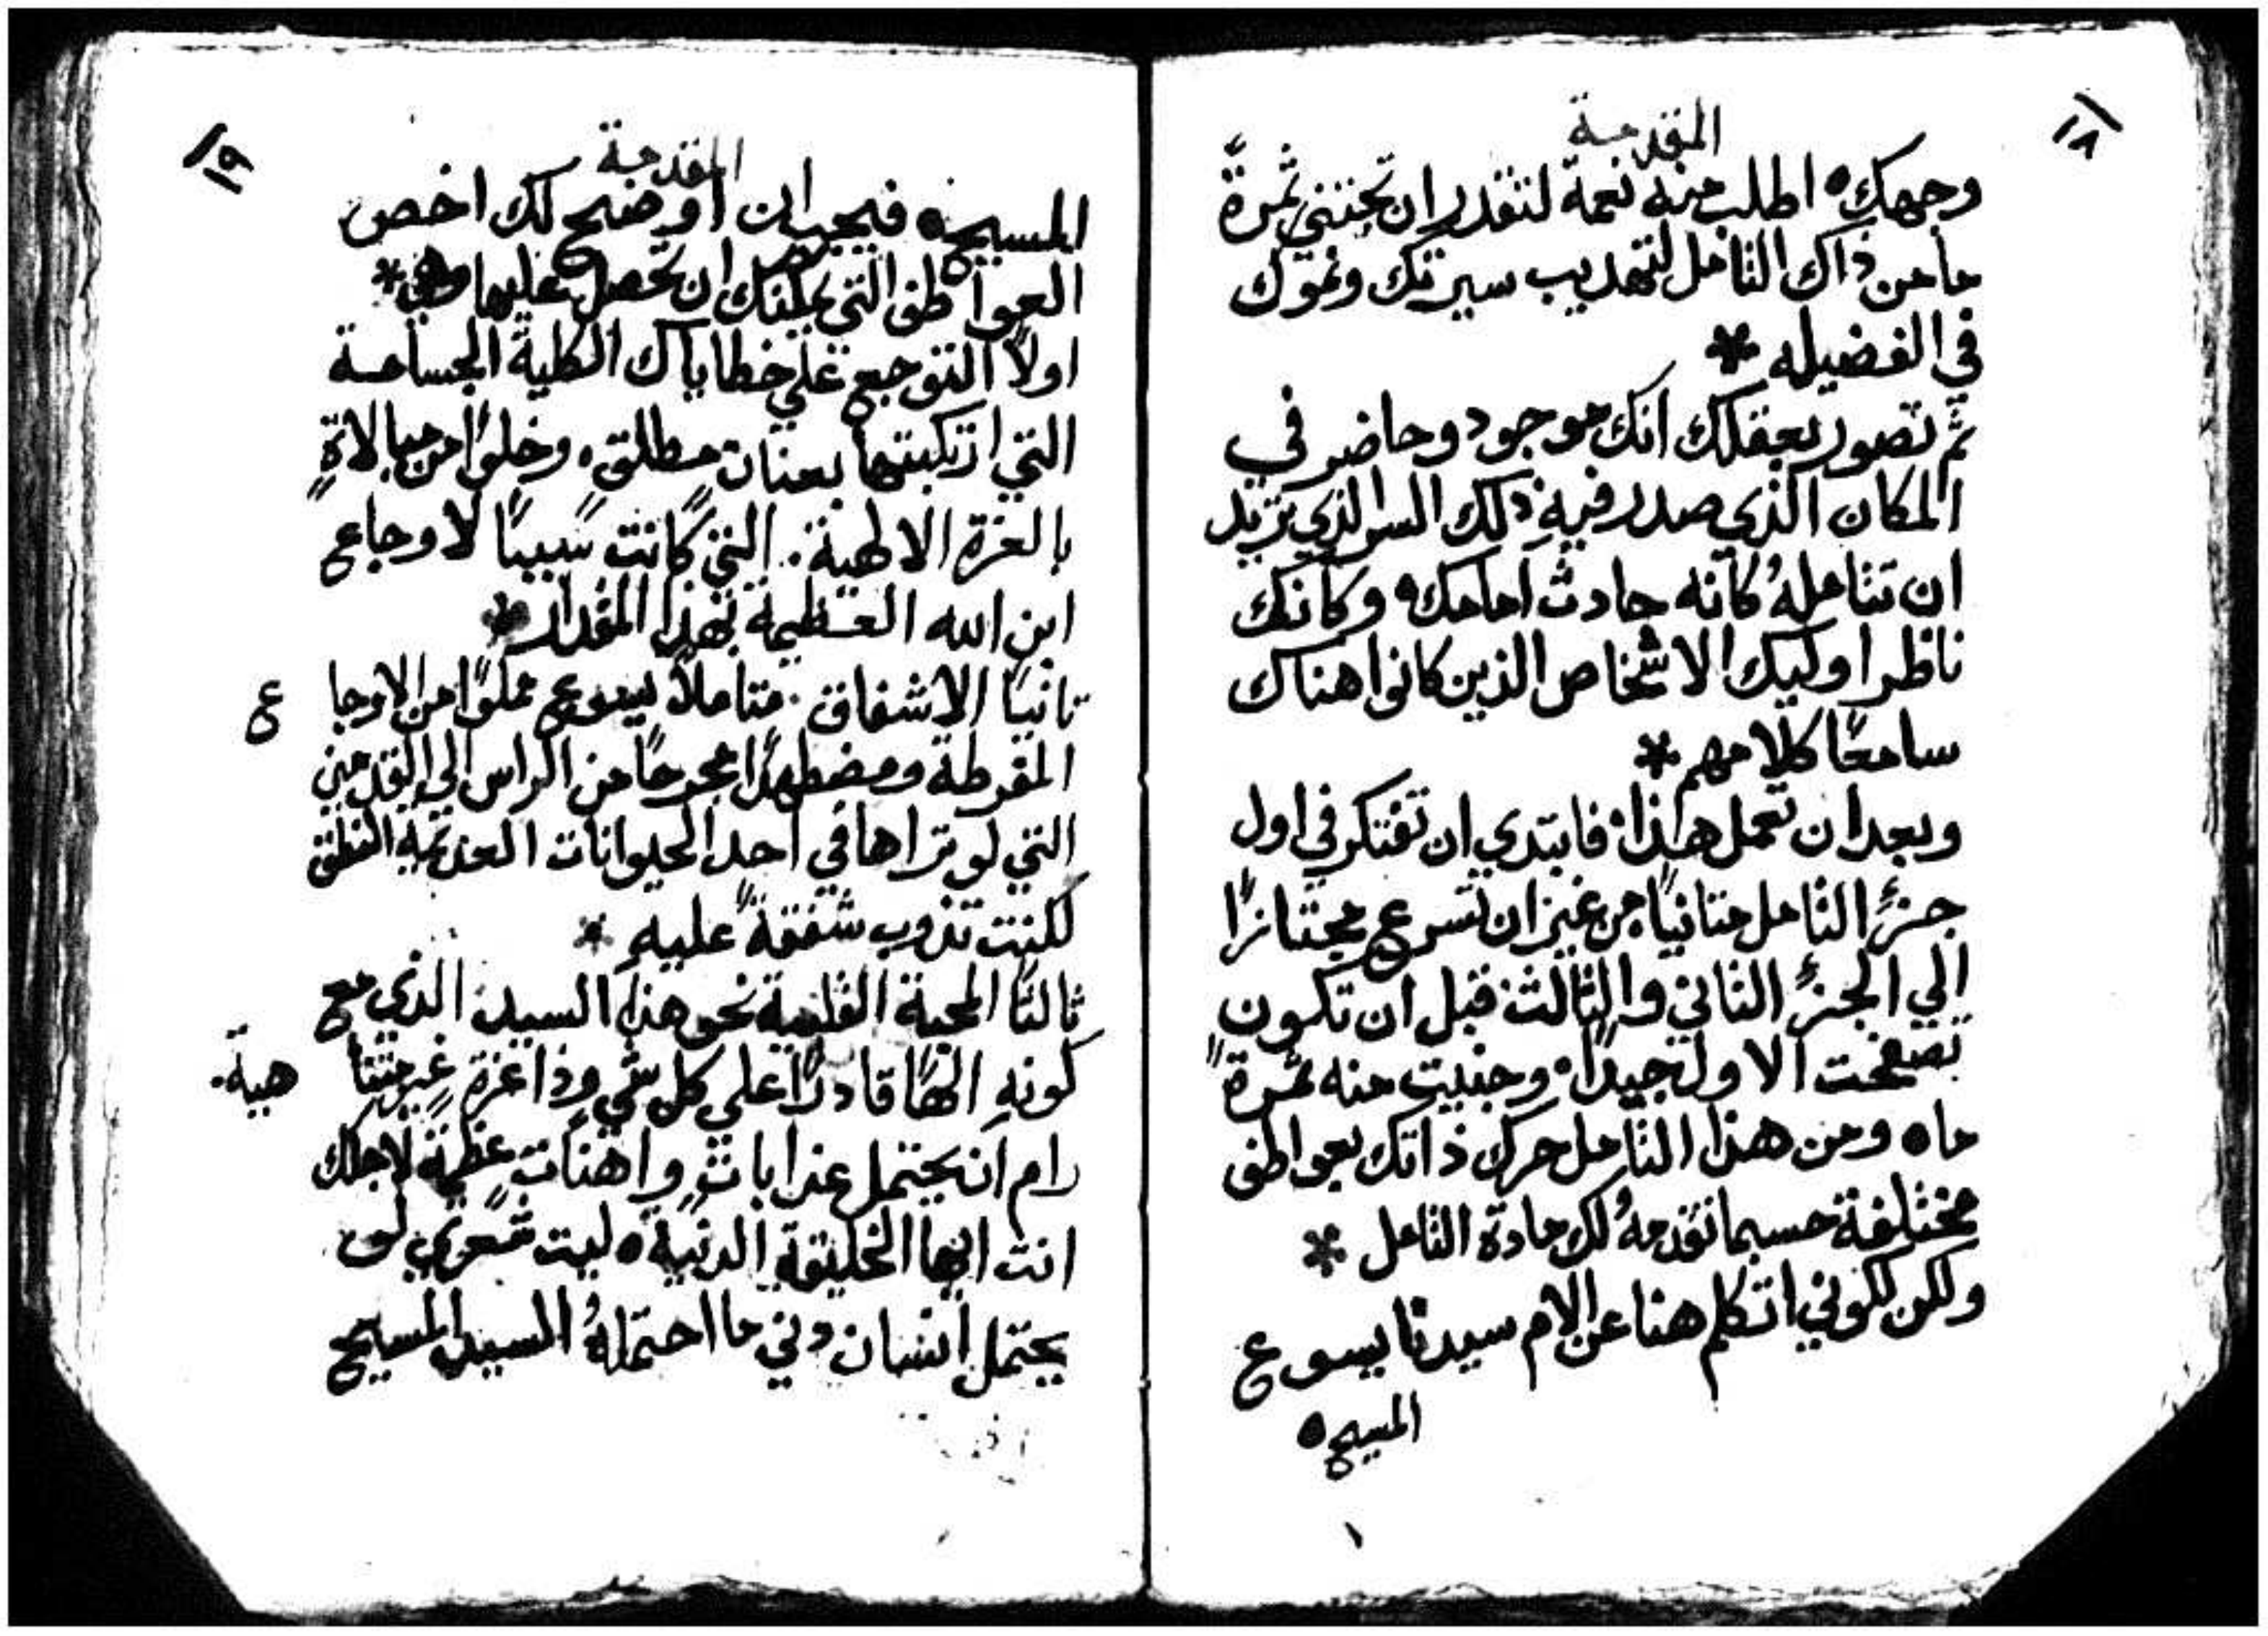 ١٨
المقدمة
وجهك ه اطلب منه نعمة لتقدر ان تجتني ثمرةً
ما من ذاك التامل لتهديب سيرتك ونموك
في الفضيله *
ثم تصور بعقلك انك موجود وحاضر في
المكان الذي صدر فيهِ ذلك السر الذي تريد
ان تتاملهُ كانه حادث امامك ه وكانك
ناظر اوليك الاشخاص الذين كانوا هناك
سامعًا كلامهم *
وبعد ان تعمل هذا ه فابتدي ان تفتكر في اول
جزءِ التامل متانيًا من غير ان تسرع مجتازًا
الي الجزءِ الثاني والثالث قبل ان تكون
تصفحت الاول جيدًا ه وجنيت منه ثمرةً
ما ه ومن هذا التامل حرك ذاتك بعواطف
مختلفة حسبما تقدمهُ لك مادة التامل *
ولكن لكوني اتكلم هنا عن الام سيدنا يسوع
المسيح ه
١
١٩
المقدمة
المسيح ه فيجب ان اوضح لك اخص
العواطف التي يمكنك ان تحصل عليها وهي *
اولاً التوجع علي خطاياك الكلية الجسامة
التي ارتكبتها بعنان مطلق ه وخلوًا من مبالاةٍ
بالعزة الالهية . التي كانت سببًا لاوجاع
ابن الله العظيمة بهذا المقدار *
ثانيًا الاشفاق . متاملاً يسوع مملوًا من الاوجا ع
المفرطة ومضطهدًا مجروحًا من الراس الي القدمين
التي لو تراها في احد الحيوانات العديمة النطق
لكنت تذوب شفقةً عليهِ *
ثالثًا المحبة القلبية نحو هذا السيد الذي مع
كونهِ الهًا قادرًا علي كل شي وذا عزةٍ غير متنا هية .
رام ان يحتمل عذاباتٍ واهناتٍ عظيمة لاجلك
انت ايها الخليقة الدنية ه ليت شعري لو
يحتمل انسان دني ما احتملهُ السيد المسيح